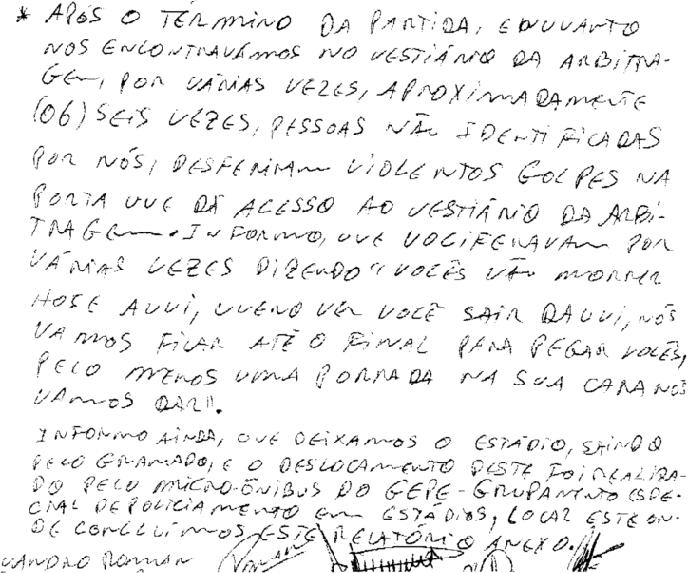 * APÓS O TÉRMINO DA PARTIDA, ENQUANTO
NOS ENCONTRAVAMOS NO VESTIÁRIO DA ARBITRA-
GEM, POR VÁRIAS VEZES, APROXIMADAMENTE
(06) SEIS VEZES, PESSOAS NÃO IDENTIFICADAS
POR NÓS, DESFERIRAM VIOLENTOS GOLPES NA
PORTA QUE DÁ ACESSO AO VESTIÁRIO DA ARBI-
TRAGEM. INFORMO, QUE VOCIFERAVAM POR
VÁRIAS VEZES DIZENDO "VOCÊS VÃO MORRER
HOJE AQUI, QUERO VER VOCÊ SAIR DAQUI, NÓS
VAMOS FICAR ATÉ O FINAL PARA PEGAR VOCÊS,
PELO MENOS UMA PORRADA NA SUA CARA NÓS
VAMOS DAR".
INFORMO AINDA, QUE DEIXAMOS O ESTÁDIO, SAINDO
PELO GRAMADO, E O DESLOCAMENTO DESTE FOI REALIZA-
DO PELO MICRO-ÔNIBUS DO GEPE-GRUPAMENTO ESPE-
CIAL DE POLICIAMENTO EM ESTÁDIOS, LOCAL ESTE ON-
DE CONCLUÍMOS ESTE RELATÓRIO ANEXO.
ROMAN